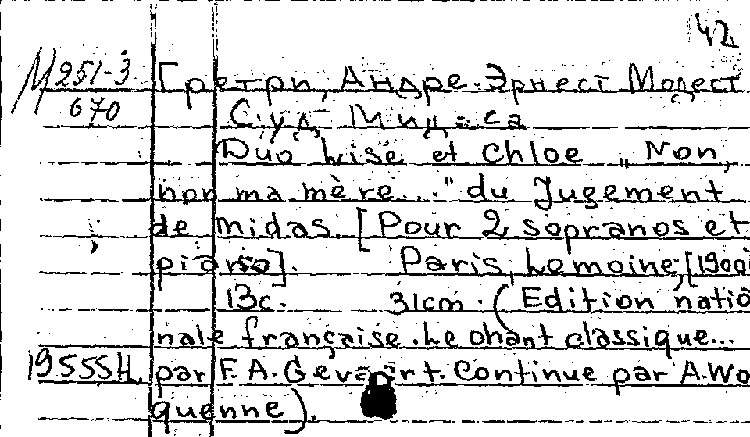 42
М 251-3
670
Гретри, Андре-Эрнест Модест
Суд Мидаса
Duo Lise et Chloe „Non,
non ma mère..." du Jugement
de midas. [Pour 2 sopranos et
piano]. Paris, Lemoine, [1900
13c. 31cm. (Edition natio
nale française. Le chant classique...
19555H par F. A. Gevaert. Continue par A. Wo
quenne).